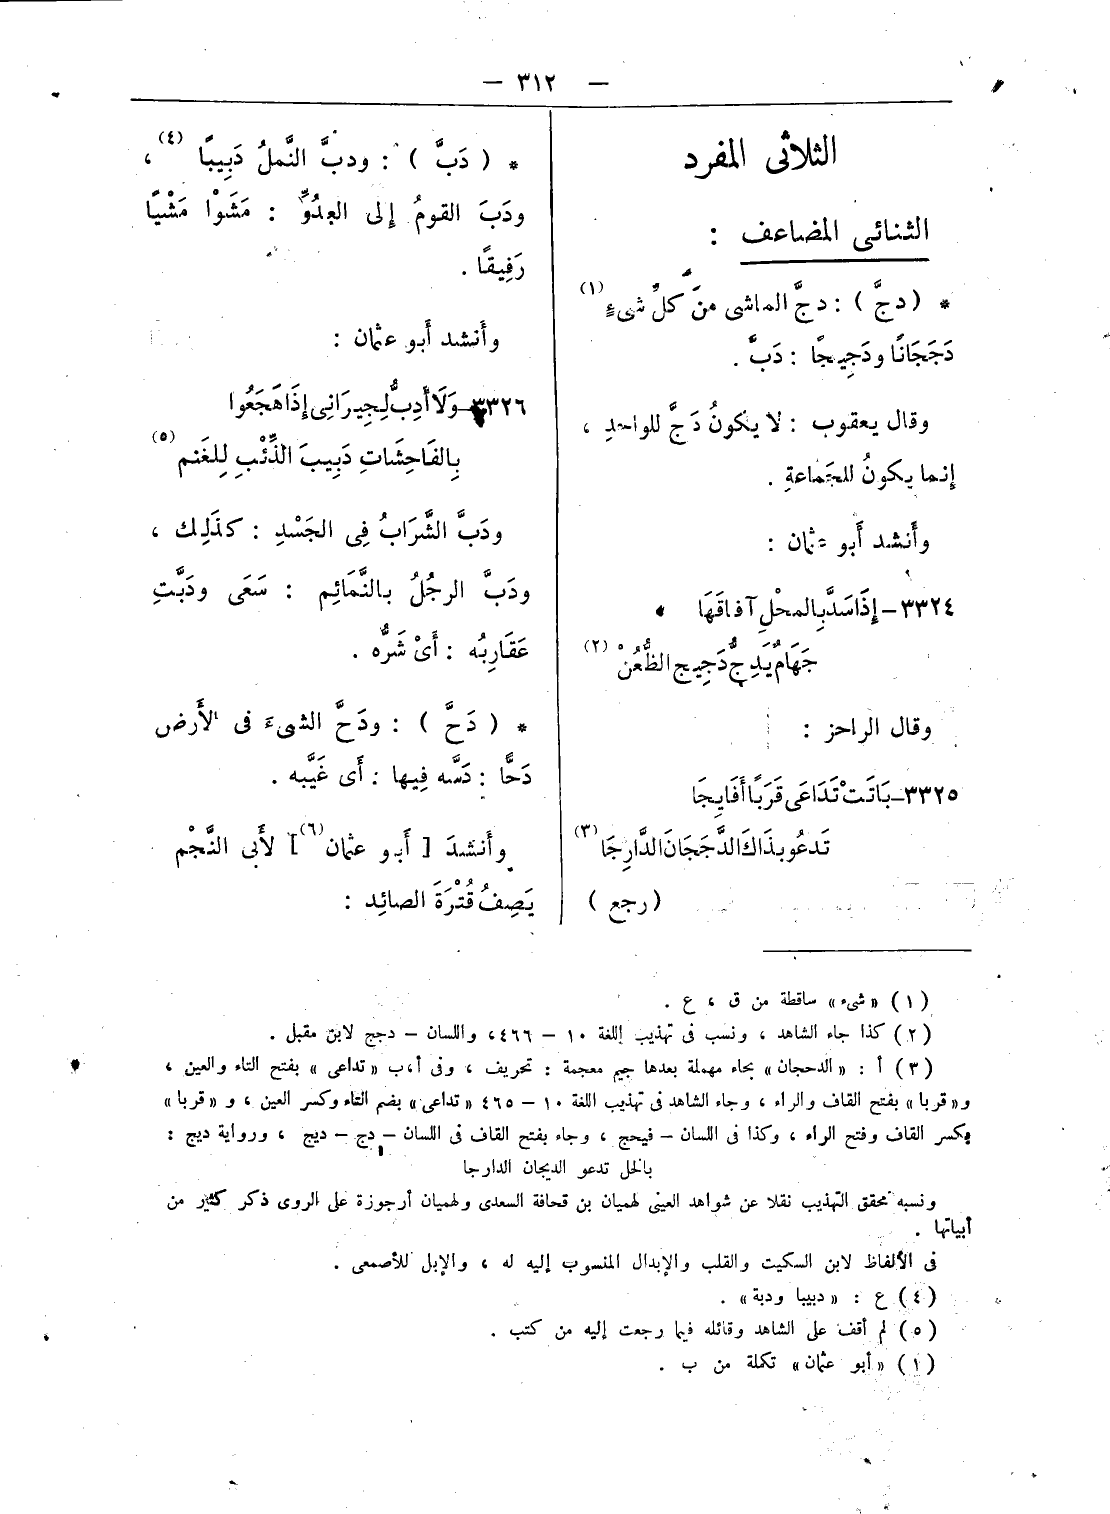 — ٣١٢ —
الثلاثى المفرد
الثنائى المضاعف :
* ( دجَّ ) : دجَّ الماشى منَ كلِّ شىءٍ (١)
دَجَجَانًا ودَجِيجًا : دَبَّ .
وقال يعقوب : لا يكونُ دَجَّ للواحدِ ،
إنما يكونُ للجَماعةِ .
وأَنشد أَبو عثمان :
٣٣٢٤ – إِذَا سَدَّ بِالمحْلِ آفاقَهَا
جَهَامٌ يَدِجُّ دَجِيج الظُّعُنْ (٢)
وقال الراجز :
٣٣٢٥ – بَاتَتْ تَدَاعَى قَرَبًا أَفَايِجَا
تَدعُو بذَاكَ الدَّجَجَانَ الدَّارِجَا (٣)
( رجع )
* ( دَبَّ ) : ودبَّ النَّملُ دَبِيبًا (٤) ،
ودَبَ القومُ إِلى العدُوِّ : مَشَوْا مَشْيًا
رَفِيقًا .
وأَنشد أَبو عثمان :
٣٣٢٦ – وَلَا أَدِبُّ لِجِيرَانِى إِذَا هَجَعُوا
بِالفَاحِشَاتِ دَبِيبَ الذِّئْبِ لِلغَنم (٥)
ودَبَّ الشَّرَابُ فِى الجَسْدِ : كذَلِك ،
ودَبَّ الرجُلُ بالنَّمَائِم : سَعَى ودَبَّتِ
عَقَارِبُه : أَىْ شَرُّه .
* ( دَحَّ ) : ودَحَّ الشىءَ فى الأَرض
دَحًّا : دَسَّه فِيها : أَى غَيَّبه .
وأَنشدَ [ أَبو عثمان (٦) ] لأَبى النَّجْم
يَصِفُ قُتْرَةَ الصائِد :
(١) «شىء» ساقطة من ق ، ع .
(٢) كذا جاء الشاهد ، ونسب فى تهذيب اللغة ١٠ – ٤٦٦، واللسان – دجج لابن مقبل .
(٣) أ : «الدحجان» بحاء مهملة بعدها جيم معجمة : تحريف ، وفى أ،ب «تداعى» بفتح التاء والعين ،
و«قربا» بفتح القاف والراء ، وجاء الشاهد فى تهذيب اللغة ١٠ – ٤٦٥ «تداعى» بضم التاء وكسر العين ، و «قربا»
بكسر القاف وفتح الراء ، وكذا فى اللسان – فيحج ، وجاء بفتح القاف فى اللسان – دج – ديج ، ورواية ديج :
بالخل تدعو الديجان الدارجا
ونسبه محقق التهذيب نقلا عن شواهد العينى لهميان بن قحافة السعدى ولهميان أرجوزة على الروى ذكر كثير من
أبياتها .
فى الألفاظ لابن السكيت والقلب والإبدال المنسوب إليه له ، والإبل للأصمعى .
(٤) ع : «دبيبا ودبة» .
(٥) لم أقف على الشاهد وقائله فيما رجعت إليه من كتب .
(١) «أبو عثمان» تكملة من ب .